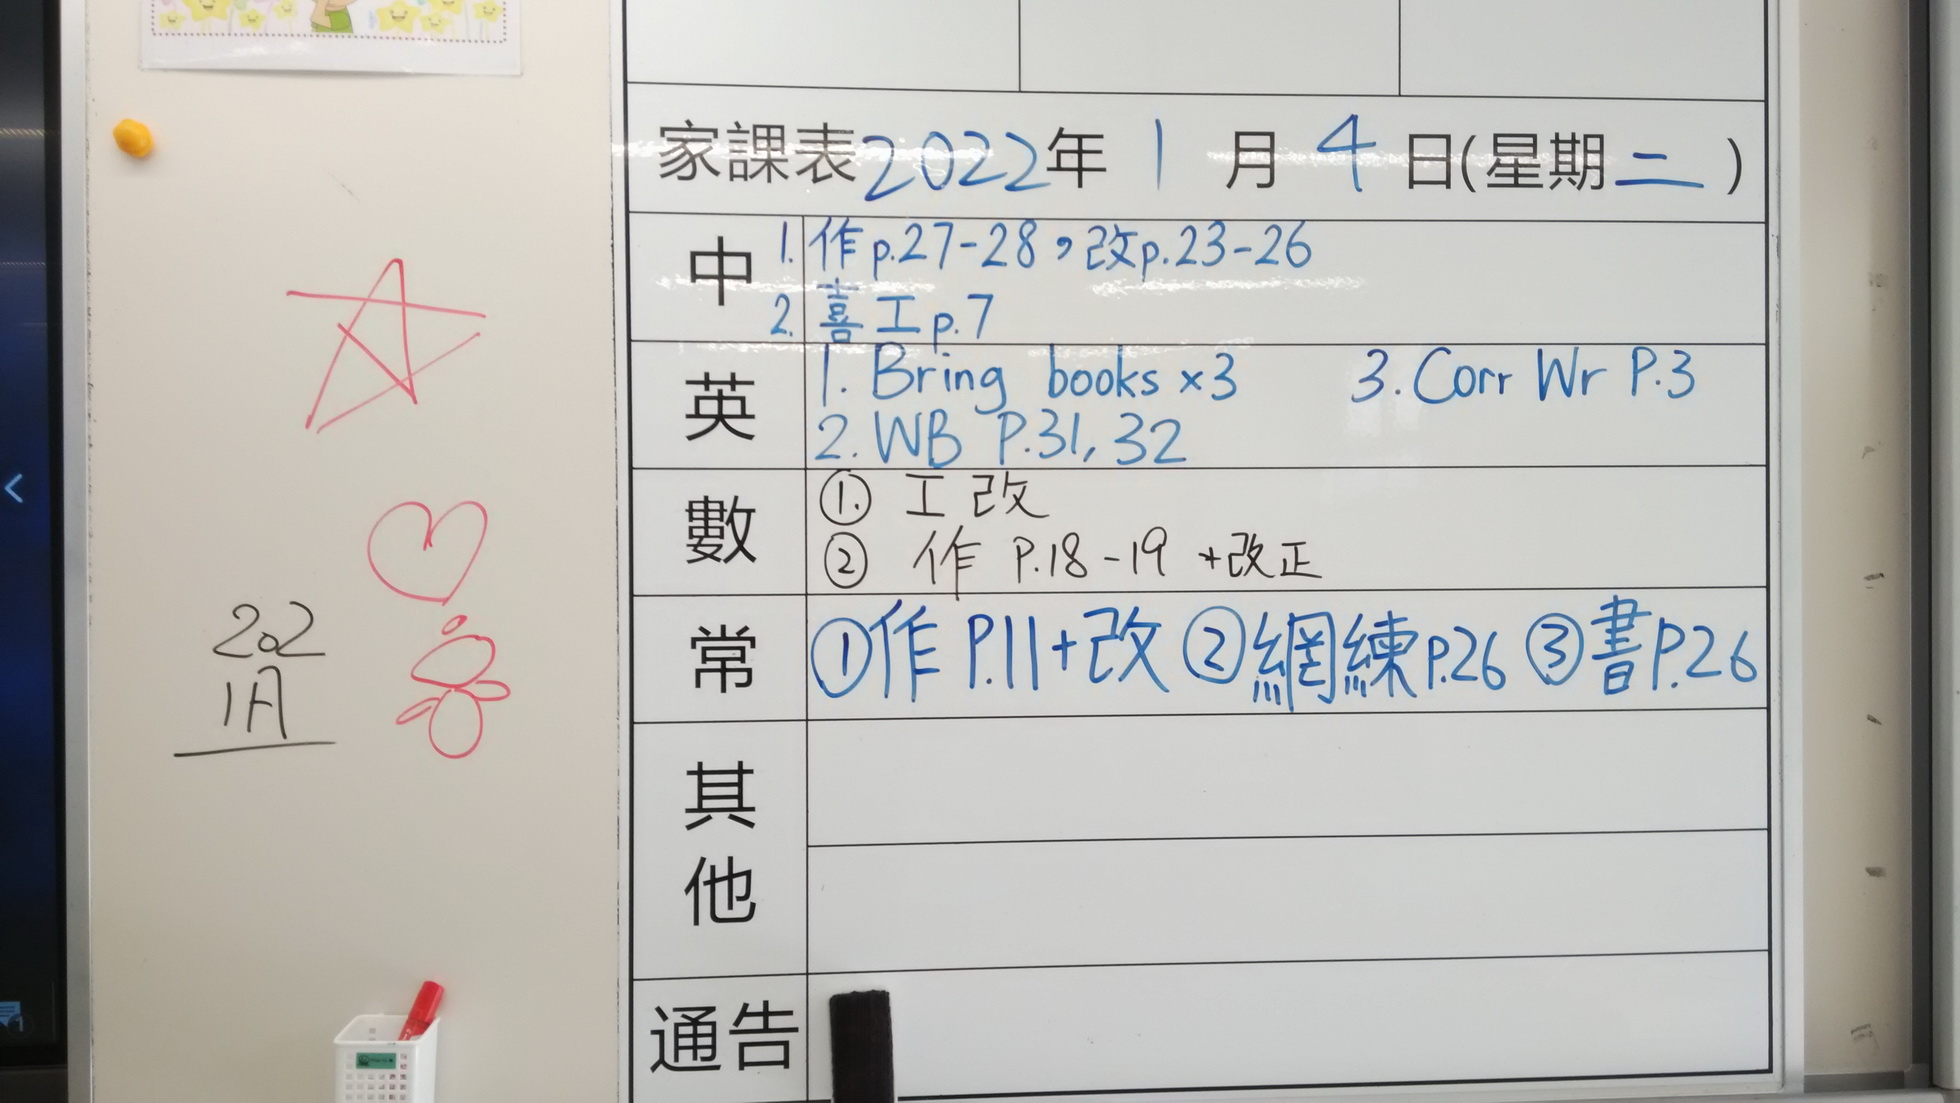 家課表2022年 1 月 4 日(星期二)
中
1. 作p.27-28，改p.23-26
2. 喜工p.7
英
1. Bring books ×3 3. Corr Wr P.3
2. WB P.31, 32
數
① 工改
② 作 P.18-19 +改正
常
①作 P.11+改 ②網練P.26 ③書P.26
其他
通告
202
1A